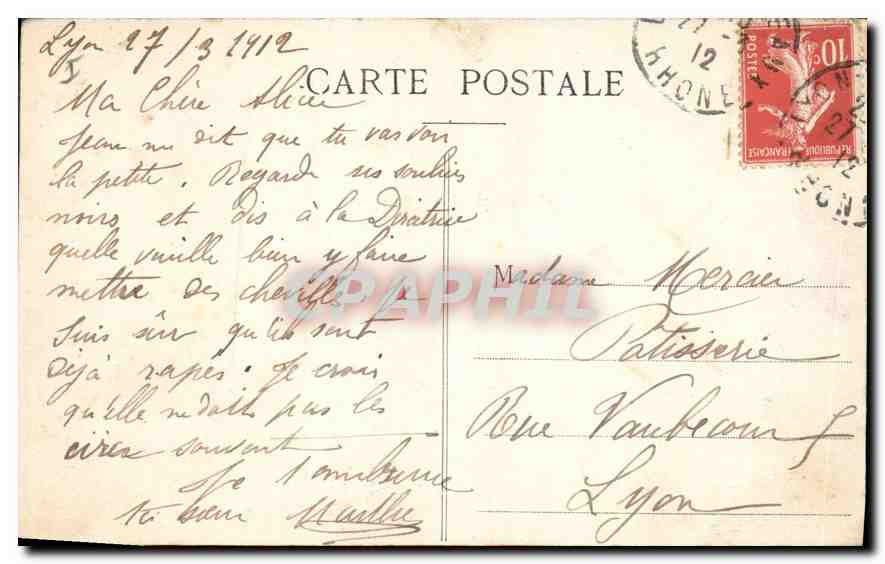 Lyon 27/3 1912
CARTE POSTALE
Ma Chère Alice
Jean me dit que tu vas voir
la petite. Regarde ses souliers
noirs et dis à la Diratrice
quelle vuille bien y faire
mettre des chevilles Je
suis sûr qu'ils sont
déjà rapés. Je crois
qu'elle ne doit pas les
cirer souvent
Je t'embrasse
ta sœur Marthe
Madame Mercier
Patisserie
Rue Vaubecour 5
Lyon
10c
POSTES
REPUBLIQUE FRANÇAISE
RHONE
12
LYON
27
12
RHONE
CPAPHIL